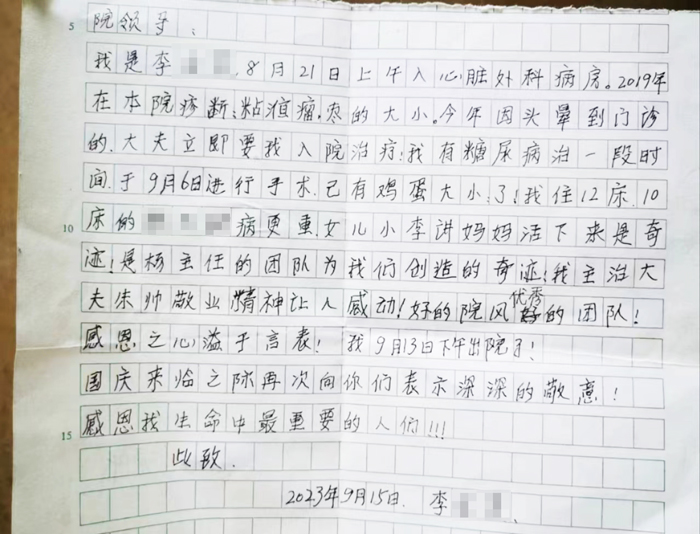 5
院领导:
我是李 8月21日上午入心脏外科病房。2019年
在本院疹断:粘殖瘤.枣的大小。今年因头晕到门诊
的.大夫立即要我入院治疗!我有糖尿病治一段时
间.于9月6日进行手术.已有鸡蛋大小了!我住12床.10
10 床的 病更重.女儿小李讲妈妈活下来是奇
迹!是杨主任的团队为我们创造的奇迹!我主治大
夫朱帅敬业精神让人感动!好的院风优秀的团队!
感恩之心溢于言表! 我9月13日下午出院了!
国庆来临之际再次向你们表示深深的敬意!
15 感恩我生命中最重要的人们!!!
此致.
2023年9月15日. 李